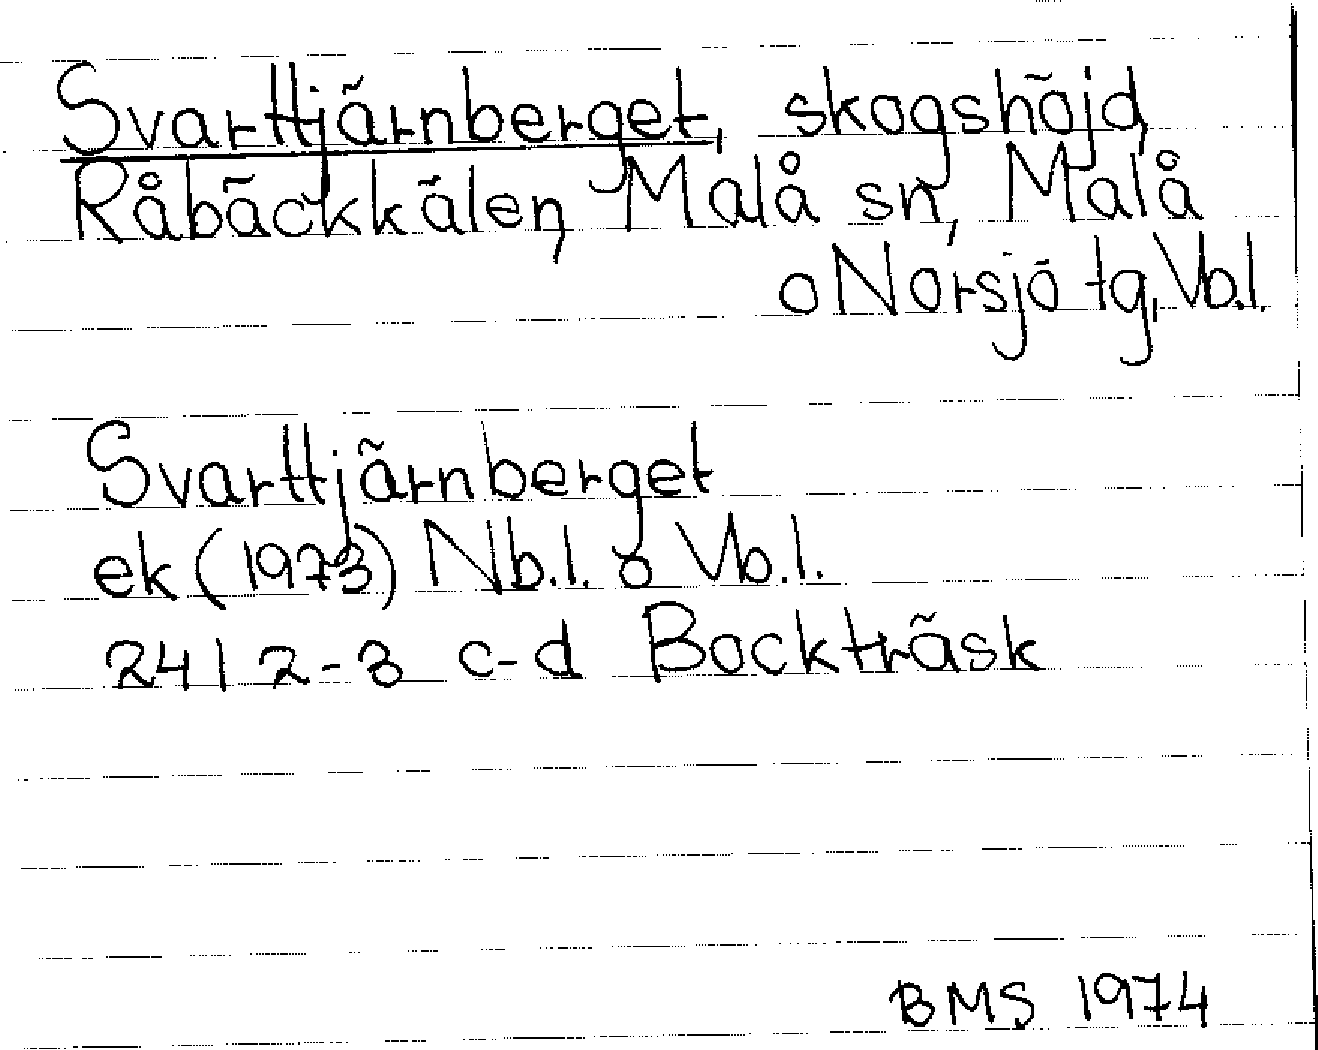 Svarttjärnberget, skogshöjd,
Råbäckkälen, Malå sn, Malå
o Norsjö tg, Vb.l.
Svarttjärnberget
ek (1973) Nb.l. o Vb.l.
24 I 2-3 c-d Bockträsk
BMS 1974